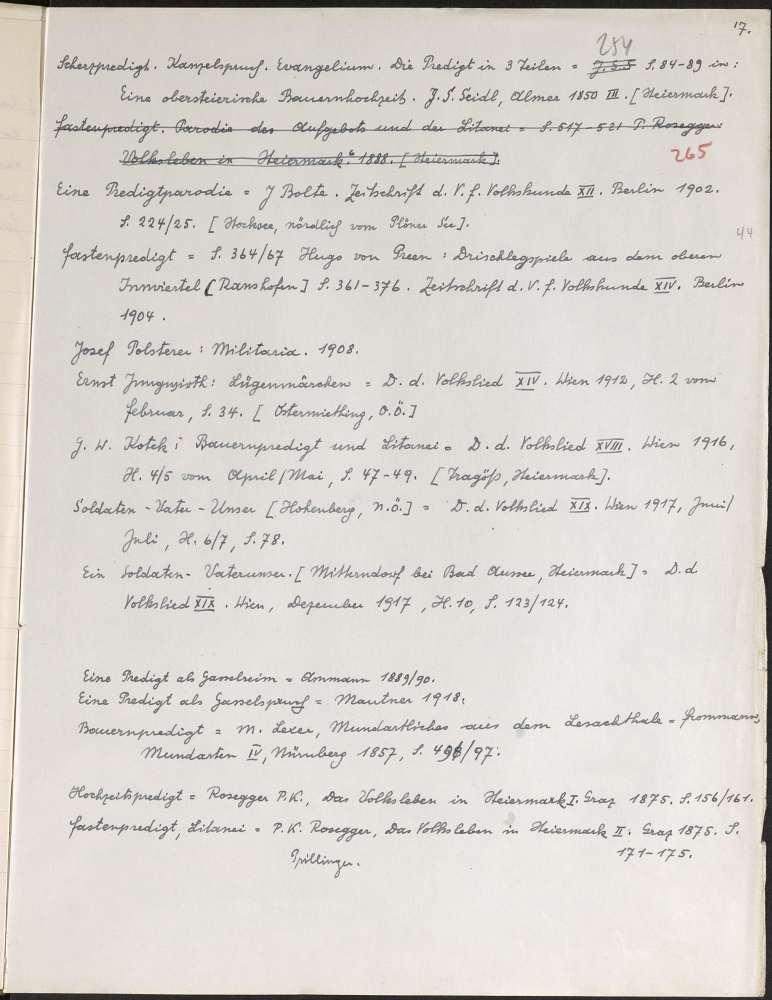 17.
254
Scherzpredigt. Kanzelspruch. Evangelium. Die Predigt in 3 Teilen = J.G.S S. 84-89 in:
Eine obersteierische Bauernhochzeit. J. G. Seidl, Almer 1850 III. [Steiermark].
Fastenpredigt. Parodie des Aufgebots und der Litanei = S. 517-521 P. Rosegger
Volksleben in Steiermark". 1888. [Steiermark].
265
Eine Predigtparodie = J Bolte. Zeitschrift d. V. f. Volkskunde XII. Berlin 1902.
S. 224/25. [Stocksee, nördlich vom Plöner See].
44
Fastenpredigt = S. 364/67 Hugo von Preen: Drischlegspiele aus dem oberen
Innviertel [Ranshofen] S. 361-376. Zeitschrift d. V. f. Volkskunde XIV. Berlin
1904.
Josef Polsterer: Militaria. 1908.
Ernst Jungwirth: Lügenmärchen = D. d. Volkslied XIV. Wien 1912, H. 2 vom
Februar, S. 34. [Ostermiething, O.Ö.]
J. W. Kotek: Bauernpredigt und Litanei = D. d. Volkslied XVIII. Wien 1916,
H. 4/5 vom April/Mai, S. 47-49. [Tragöß, Steiermark].
Soldaten-Vater-Unser [Hohenberg, N.Ö.] = D. d. Volkslied XIX. Wien 1917, Juni/
Juli, H. 6/7, S. 78.
Ein Soldaten-Vaterunser. [Mitterndorf bei Bad Aussee, Steiermark] = D. d
Volkslied XIX. Wien, Dezember 1917, H. 10, S. 123/124.
Eine Predigt als Gasselreim = Ammann 1889/90.
Eine Predigt als Gasselspruch = Mautner 1918.
Bauernpredigt = M. Lexer, Mundartliches aus dem Lesachthale = Frommanns
Mundarten IV, Nürnberg 1857, S. 496/97.
Hochzeitspredigt = Rosegger P.K., Das Volksleben in Steiermark I. Graz 1875. S. 156/161.
Fastenpredigt, Litanei = P. K. Rosegger, Das Volksleben in Steiermark II. Graz 1875. S.
171-175.